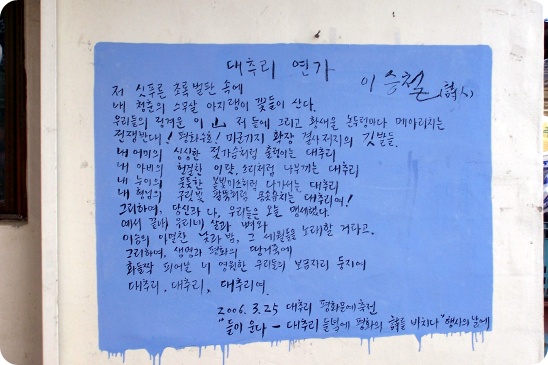 대추리 연가
이승철(詩人)
저 싯푸른 초록 벌판 속에
내 청춘의 스무살 아지랭이 꽃들이 산다.
우리들의 정겨운 이 山 저 들에 그리고 황새울 논두렁마다 메아리치는
전쟁반대! 평화수호! 미군기지 확장 결사저지의 깃발들.
내 어머의 싱싱한 젖가슴처럼 출렁이는 대추리
내 아비의 헝컬한 이랴, 소리처럼 나부끼는 대추리
내 누이의 풋풋한 눈빛미소처럼 다가서는 대추리
내 형님의 구릿빛 팔뚝처럼 용솟음치는 대추리여!
그리하여, 당신과 나, 우리들은 오늘 맹세했다.
예서 끝내 우리네 살과 뼈와
이승의 아련한 낮과 밤, 그 세월들을 노래할 거라고.
그리하여, 생명과 평화의 땅검국에
화들짝 피어날 너 영원한 우리들의 보금자리 둥지여
대추리, 대추리, 대추리여.
2006. 3. 25 대추리 평화문예축전
"들이 운다 - 대추리 들녘에 평화의 詩를 바치다" 행사의 날에